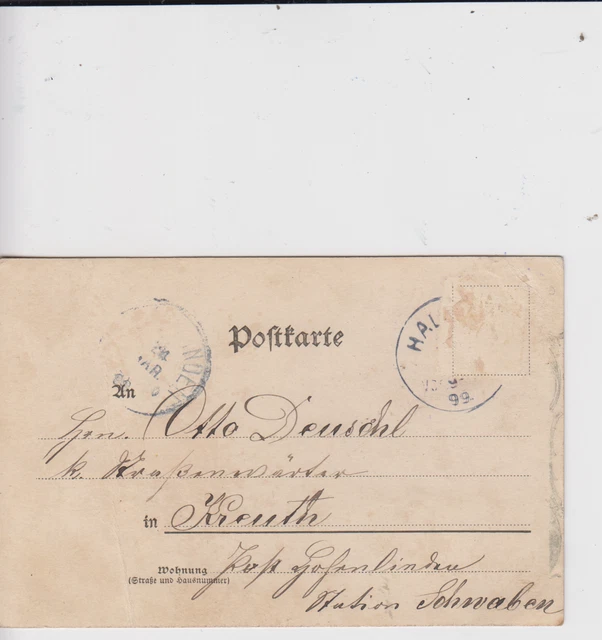 Postkarte
HAL
99
MAR.
An
Hrn. Otto Deuschl
k. Straßenwärter
in Kreuth
Wohnung Post Hohenlinden
(Straße und Hausnummer)
Station Schwaben